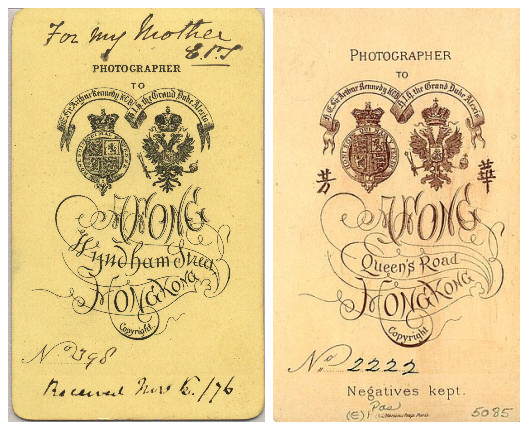 For my Mother
E.P.T
PHOTOGRAPHER
TO
H.E. Sir Arthur Kennedy K.C.M.G. H.I.H. the Grand Duke Alexis
AFONG
Wyndham Street
HONGKONG
Copyright
No 398
Received Nov 6/76
PHOTOGRAPHER
TO
H.E. Sir Arthur Kennedy K.C.M.G. H.I.H. the Grand Duke Alexis
芳 華
AFONG
Queen's Road
HONGKONG
Copyright
No 2222
Negatives kept.
(E)
5085